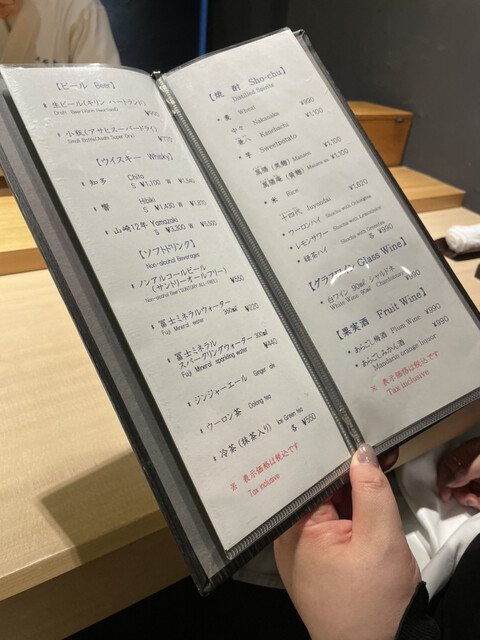 【ビール Beer】
生ビール(キリン ハートランド)
¥990
Draft Beer(Kirin Heartland)
小瓶(アサヒスーパードライ)
¥770
Small Bottle(Asahi Super Dry)
【ウイスキー Whisky】
知多 Chita
S ¥1,100 W ¥1,540
響 Hibiki
S ¥1,430 W ¥1,870
山崎12年 Yamazaki
S ¥3,300 W ¥5,500
【ソフトドリンク】
Non-alcohol Beverages
ノンアルコールビール
(サントリーオールフリー) ¥550
Non-alcohol Beer(SUNTORY ALL-FREE)
富士ミネラルウォーター
Fuji Mineral water ¥220
富士ミネラル
スパークリングウォーター 300㎖
Fuji Mineral sparkling water ¥440
ジンジャーエール Ginger ale
ウーロン茶 Oolong tea
冷茶(抹茶入り) Ice Green tea
各 ¥550
※ 表示価格は税込です
Tax inclusive
【焼 酎 Sho-chu】
Distilled Spirits
麦 Wheat
中々 Nakanaka ¥990
兼八 Kanehachi ¥1,100
芋 Sweetpotato
¥1,100
¥1,100
米 Rice
十四代 Juyondai ¥1,620
ウーローンハイ
レモンサワー
緑茶ハイ
各 ¥990
【グラスワイン Glass Wine】
白ワイン 90㎖ シャルドネ
White Wine 90㎖ Chardonnay ¥990
【果実酒 Fruit Wine】
あらごし梅酒 Plum Wine ¥990
あらごしみかん酒 ¥990
Mandarin orange liquor
※ 表示価格は税込です
Tax inclusive